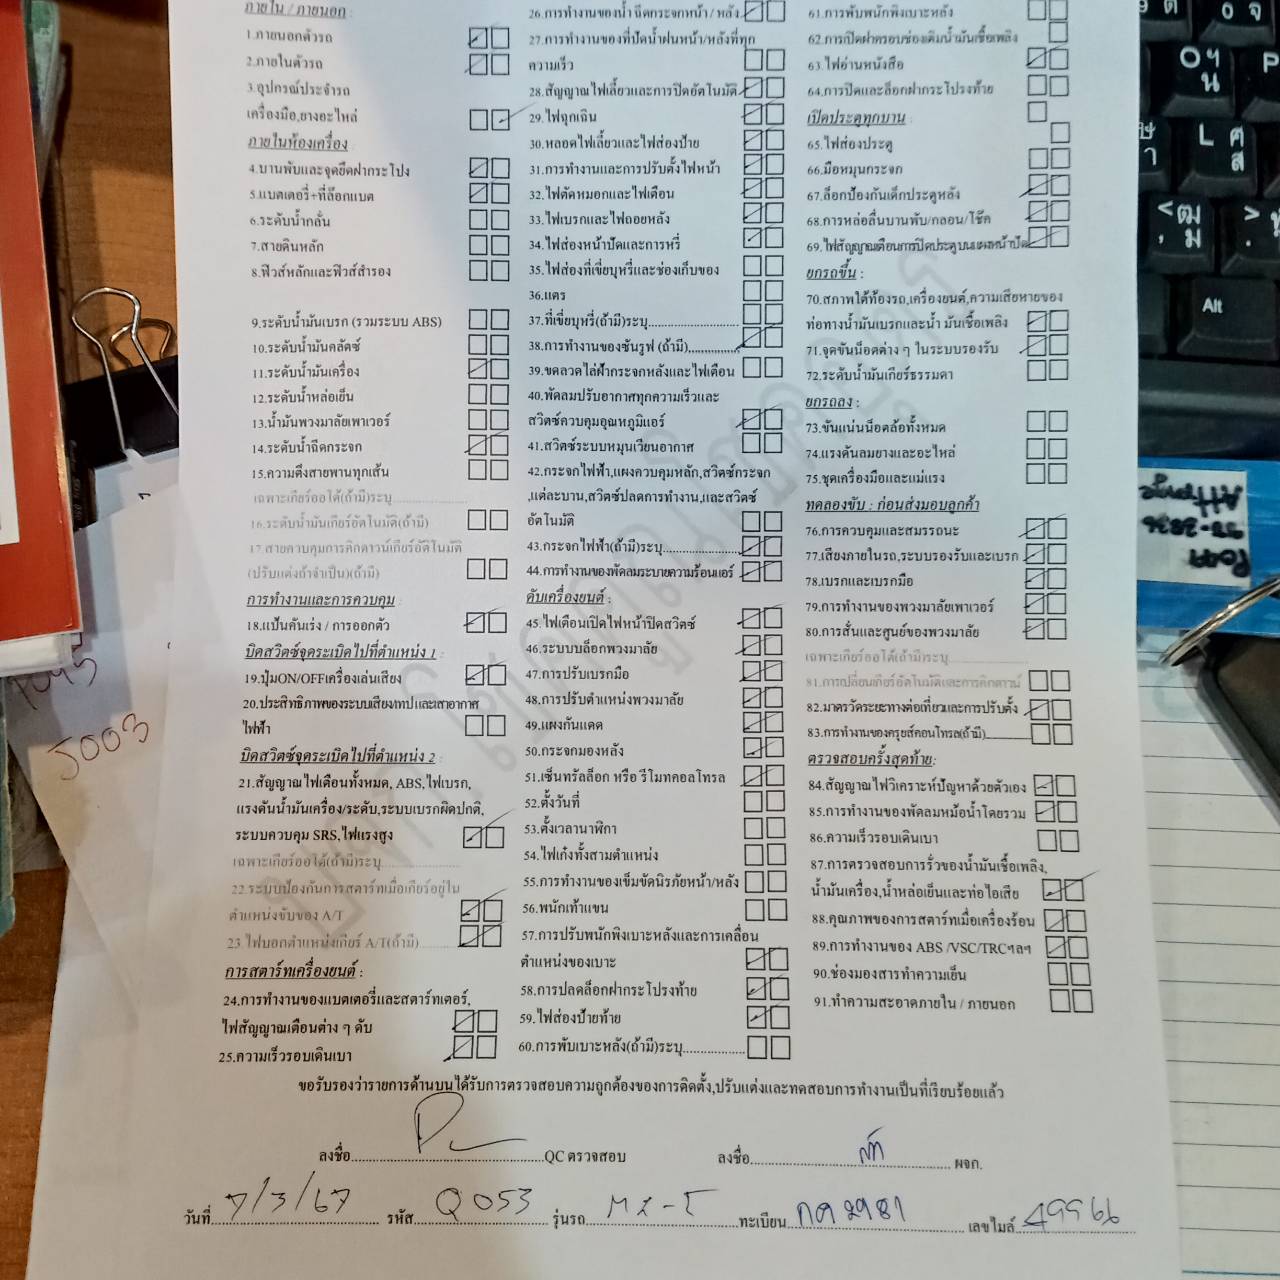 ภายใน / ภายนอก :
1.ภายนอกตัวรถ
2.ภายในตัวรถ
3.อุปกรณ์ประจำรถ
เครื่องมือ,ยางอะไหล่
ภายในห้องเครื่อง :
4.บานพับและจุดยึดฝากระโปง
5.แบตเตอรี่+ที่ล็อกแบต
6.ระดับน้ำกลั่น
7.สายดินหลัก
8.ฟิวส์หลักและฟิวส์สำรอง
9.ระดับน้ำมันเบรก (รวมระบบ ABS)
10.ระดับน้ำมันคลัตซ์
11.ระดับน้ำมันเครื่อง
12.ระดับน้ำหล่อเย็น
13.น้ำมันพวงมาลัยเพาเวอร์
14.ระดับน้ำฉีดกระจก
15.ความตึงสายพานทุกเส้น
เฉพาะเกียร์ออโต้(ถ้ามี)ระบุ
16.ระดับน้ำมันเกียร์อัตโนมัติ(ถ้ามี)
17.สายควบคุมการคิกดาวน์เกียร์อัตโนมัติ
(ปรับแต่งถ้าจำเป็น)(ถ้ามี)
การทำงานและการควบคุม :
18.แป้นคันเร่ง / การออกตัว
บิดสวิตซ์จุดระเบิดไปที่ตำแหน่ง 1 :
19.ปุ่มON/OFFเครื่องเล่นเสียง
20.ประสิทธิภาพของระบบเสียง/เทป และเสาอากาศ
ไฟฟ้า
บิดสวิตซ์จุดระเบิดไปที่ตำแหน่ง 2 :
21.สัญญาณไฟเตือนทั้งหมด, ABS,ไฟเบรก,
แรงดันน้ำมันเครื่อง/ระดับ,ระบบเบรกผิดปกติ,
ระบบควบคุม SRS,ไฟแรงสูง
เฉพาะเกียร์ออโต้(ถ้ามี)ระบุ
22.ระบบป้องกันการสตาร์ทเมื่อเกียร์อยู่ใน
ตำแหน่งขับของ A/T
23 ไฟบอกตำแหน่งเกียร์ A/T(ถ้ามี)
การสตาร์ทเครื่องยนต์ :
24.การทำงานของแบตเตอรี่และสตาร์ทเตอร์,
ไฟสัญญาณเตือนต่าง ๆ ดับ
25.ความเร็วรอบเดินเบา
26.การทำงานของน้ำ ฉีดกระจกหน้า / หลัง
27.การทำงานของที่ปัดน้ำฝนหน้า/หลังที่ทุก
ความเร็ว
28.สัญญาณไฟเลี้ยวและการปิดอัตโนมัติ
29.ไฟฉุกเฉิน
30.หลอดไฟเลี้ยวและไฟส่องป้าย
31.การทำงานและการปรับตั้งไฟหน้า
32.ไฟตัดหมอกและไฟเตือน
33.ไฟเบรกและไฟถอยหลัง
34.ไฟส่องหน้าปัดและการหรี่
35.ไฟส่องที่เขี่ยบุหรี่และช่องเก็บของ
36.แตร
37.ที่เขี่ยบุหรี่(ถ้ามี)ระบุ
38.การทำงานของซันรูฟ (ถ้ามี)
39.ขดลวดไล่ฝ้ากระจกหลังและไฟเตือน
40.พัดลมปรับอากาศทุกความเร็วและ
สวิตซ์ควบคุมอุณหภูมิแอร์
41.สวิตซ์ระบบหมุนเวียนอากาศ
42.กระจกไฟฟ้า,แผงควบคุมหลัก,สวิตซ์กระจก
,แต่ละบาน,สวิตซ์ปลดการทำงาน,และสวิตซ์
อัตโนมัติ
43.กระจกไฟฟ้า(ถ้ามี)ระบุ
44.การทำงานของพัดลมระบายความร้อนแอร์
ดับเครื่องยนต์ :
45.ไฟเตือนเปิดไฟหน้าปิดสวิตซ์
46.ระบบบล็อกพวงมาลัย
47.การปรับเบรกมือ
48.การปรับตำแหน่งพวงมาลัย
49.แผงกันแดด
50.กระจกมองหลัง
51.เซ็นทรัลล็อก หรือ รีโมทคอลโทรล
52.ตั้งวันที่
53.ตั้งเวลานาฬิกา
54.ไฟเก๋งทั้งสามตำแหน่ง
55.การทำงานของเข็มขัดนิรภัยหน้า/หลัง
56.พนักเท้าแขน
57.การปรับพนักพิงเบาะหลังและการเคลื่อน
ตำแหน่งของเบาะ
58.การปลดล็อกฝากระโปรงท้าย
59.ไฟส่องป้ายท้าย
60.การพับเบาะหลัง(ถ้ามี)ระบุ
61.การพับพนักพิงเบาะหลัง
62.การเปิดฝาครอบช่องเติมน้ำมันเชื้อเพลิง
63.ไฟอ่านหนังสือ
64.การปิดและล็อกฝากระโปรงท้าย
เปิดประตูทุกบาน :
65.ไฟส่องประตู
66.มือหมุนกระจก
67.ล็อกป้องกันเด็กประตูหลัง
68.การหล่อลื่นบานพับ/กลอน/โช๊ค
69.ไฟสัญญาณเตือนการปิดประตูบนแผงหน้าปัด
ยกรถขึ้น :
70.สภาพใต้ท้องรถ,เครื่องยนต์,ความเสียหายของ
ท่อทางน้ำมันเบรกและน้ำ มันเชื้อเพลิง
71.จุดขันน็อตต่าง ๆ ในระบบรองรับ
72.ระดับน้ำมันเกียร์ธรรมดา
ยกรถลง :
73.ขันแน่นน็อตล้อทั้งหมด
74.แรงดันลมยางและอะไหล่
75.ชุดเครื่องมือและแม่แรง
ทดลองขับ : ก่อนส่งมอบลูกค้า
76.การควบคุมและสมรรถนะ
77.เสียงภายในรถ,ระบบรองรับและเบรก
78.เบรกและเบรกมือ
79.การทำงานของพวงมาลัยเพาเวอร์
80.การสั่นและศูนย์ของพวงมาลัย
เฉพาะเกียร์ออโต้(ถ้ามี)ระบุ
81.การเปลี่ยนเกียร์อัตโนมัติและการคิกดาวน์
82.มาตรวัดระยะทางต่อเที่ยวและการปรับตั้ง
83.การทำงานของครุยส์คอนโทรล(ถ้ามี)
ตรวจสอบครั้งสุดท้าย:
84.สัญญาณไฟวิเคราะห์ปัญหาด้วยตัวเอง
85.การทำงานของพัดลมหม้อน้ำโดยรวม
86.ความเร็วรอบเดินเบา
87.การตรวจสอบการรั่วของน้ำมันเชื้อเพลิง,
น้ำมันเครื่อง,น้ำหล่อเย็นและท่อไอเสีย
88.คุณภาพของการสตาร์ทเมื่อเครื่องร้อน
89.การทำงานของ ABS /VSC/TRCฯลฯ
90.ช่องมองสารทำความเย็น
91.ทำความสะอาดภายใน / ภายนอก
ขอรับรองว่ารายการด้านบนได้รับการตรวจสอบความถูกต้องของการติดตั้ง,ปรับแต่งและทดสอบการทำงานเป็นที่เรียบร้อยแล้ว
ลงชื่อ QC ตรวจสอบ ลงชื่อ ผจก.
วันที่ 7/3/67 รหัส Q053 รุ่นรถ ทะเบียน เลขไมล์ 49966
J003
Alt
L
P